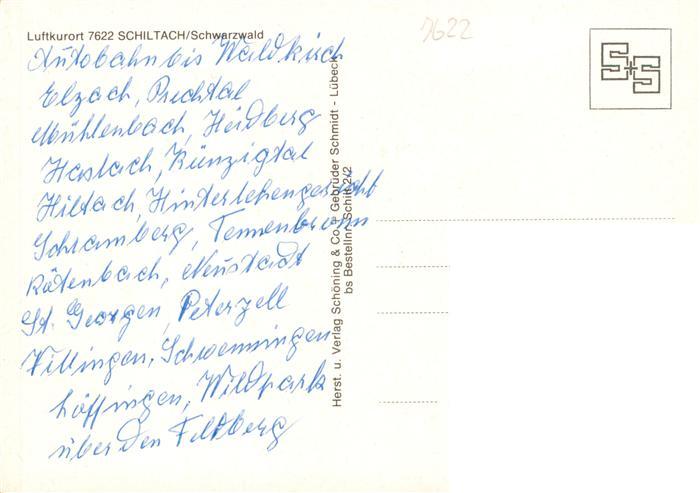 Luftkurort 7622 SCHILTACH/Schwarzwald
7622
S+S
Autobahn bis Waldkirch
Elzach, Prechtal
Mühlenbach, Heidberg
Haslach, Künzigtal
Hiltach, Hinterlehengericht
Schramberg, Tennenbronn
Rötenbach, Neustadt
St. Georgen, Peterzell
Villingen, Schwenningen
Löffingen, Wildpark
über den Feldberg
Herst. u. Verlag Schöning & Co. + Gebrüder Schmidt - Lübeck
bs Bestellnr. Schilt 2/2